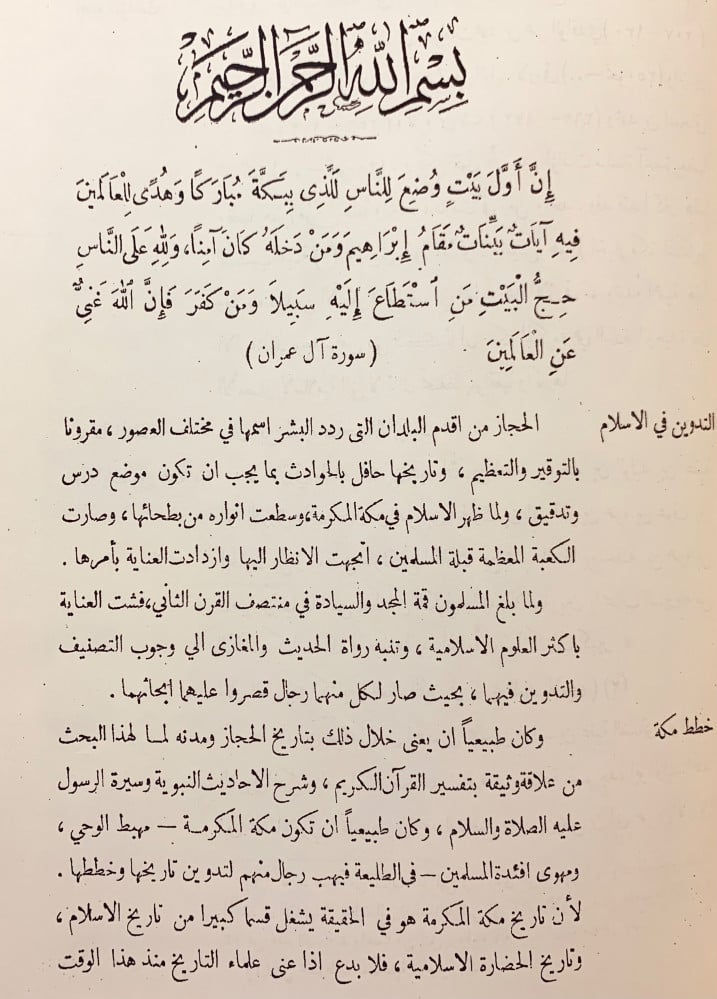 بِسْمِ اللهِ الرَّحْمٰنِ الرَّحِيْمِ
إِنَّ أَوَّلَ بَيْتٍ وُضِعَ لِلنَّاسِ لَلَّذِى بِبَكَّةَ مُبَارَكًا وَهُدًى لِلْعَالَمِينَ
فِيهِ آيَاتٌ بَيِّنَاتٌ مَقَامُ إِبْرَاهِيمَ وَمَنْ دَخَلَهُ كَانَ آمِنًا، وَلِلهِ عَلَى النَّاسِ
حِجُّ الْبَيْتِ مَنِ اسْتَطَاعَ إِلَيْهِ سَبِيلاً وَمَنْ كَفَرَ فَإِنَّ اللهَ غَنِىٌّ
عَنِ الْعَالَمِينَ (سورة آل عمران)
التدوين في الاسلام
الحجاز من اقدم البلدان التى ردد البشر اسمها في مختلف العصور ، مقرونا
بالتوقير والتعظيم ، وتاريخها حافل بالحوادث بما يجب ان تكون موضع درس
وتدقيق ، ولما ظهر الاسلام في مكة المكرمة، وسطعت انواره من بطحائها ، وصارت
الكعبة المعظمة قبلة المسلمين ، اتجهت الانظار اليها وازدادت العناية بأمرها .
ولما بلغ المسلمون قمة المجد والسيادة في منتصف القرن الثاني، فشت العناية
باكثر العلوم الاسلامية ، وتنبه رواة الحديث والمغازى الي وجوب التصنيف
والتدوين فيهما ، بحيث صار لكل منهما رجال قصروا عليهما ابحاثهما .
خطط مكة
وكان طبيعياً ان يعنى خلال ذلك بتاريخ الحجاز ومدنه لما لهذا البحث
من علاقة وثيقة بتفسير القرآن الكريم ، وشرح الاحاديث النبوية وسيرة الرسول
عليه الصلاة والسلام ، وكان طبيعياً ان تكون مكة المكرمة — مهبط الوحي ،
ومهوى افئدة المسلمين — في الطليعة فيهب رجال منهم لتدوين تاريخها وخططها .
لأن تاريخ مكة المكرمة هو في الحقيقة يشغل قسما كبيرا من تاريخ الاسلام ،
وتاريخ الحضارة الاسلامية ، فلا بدع اذا عنى علماء التاريخ منذ هذا الوقت